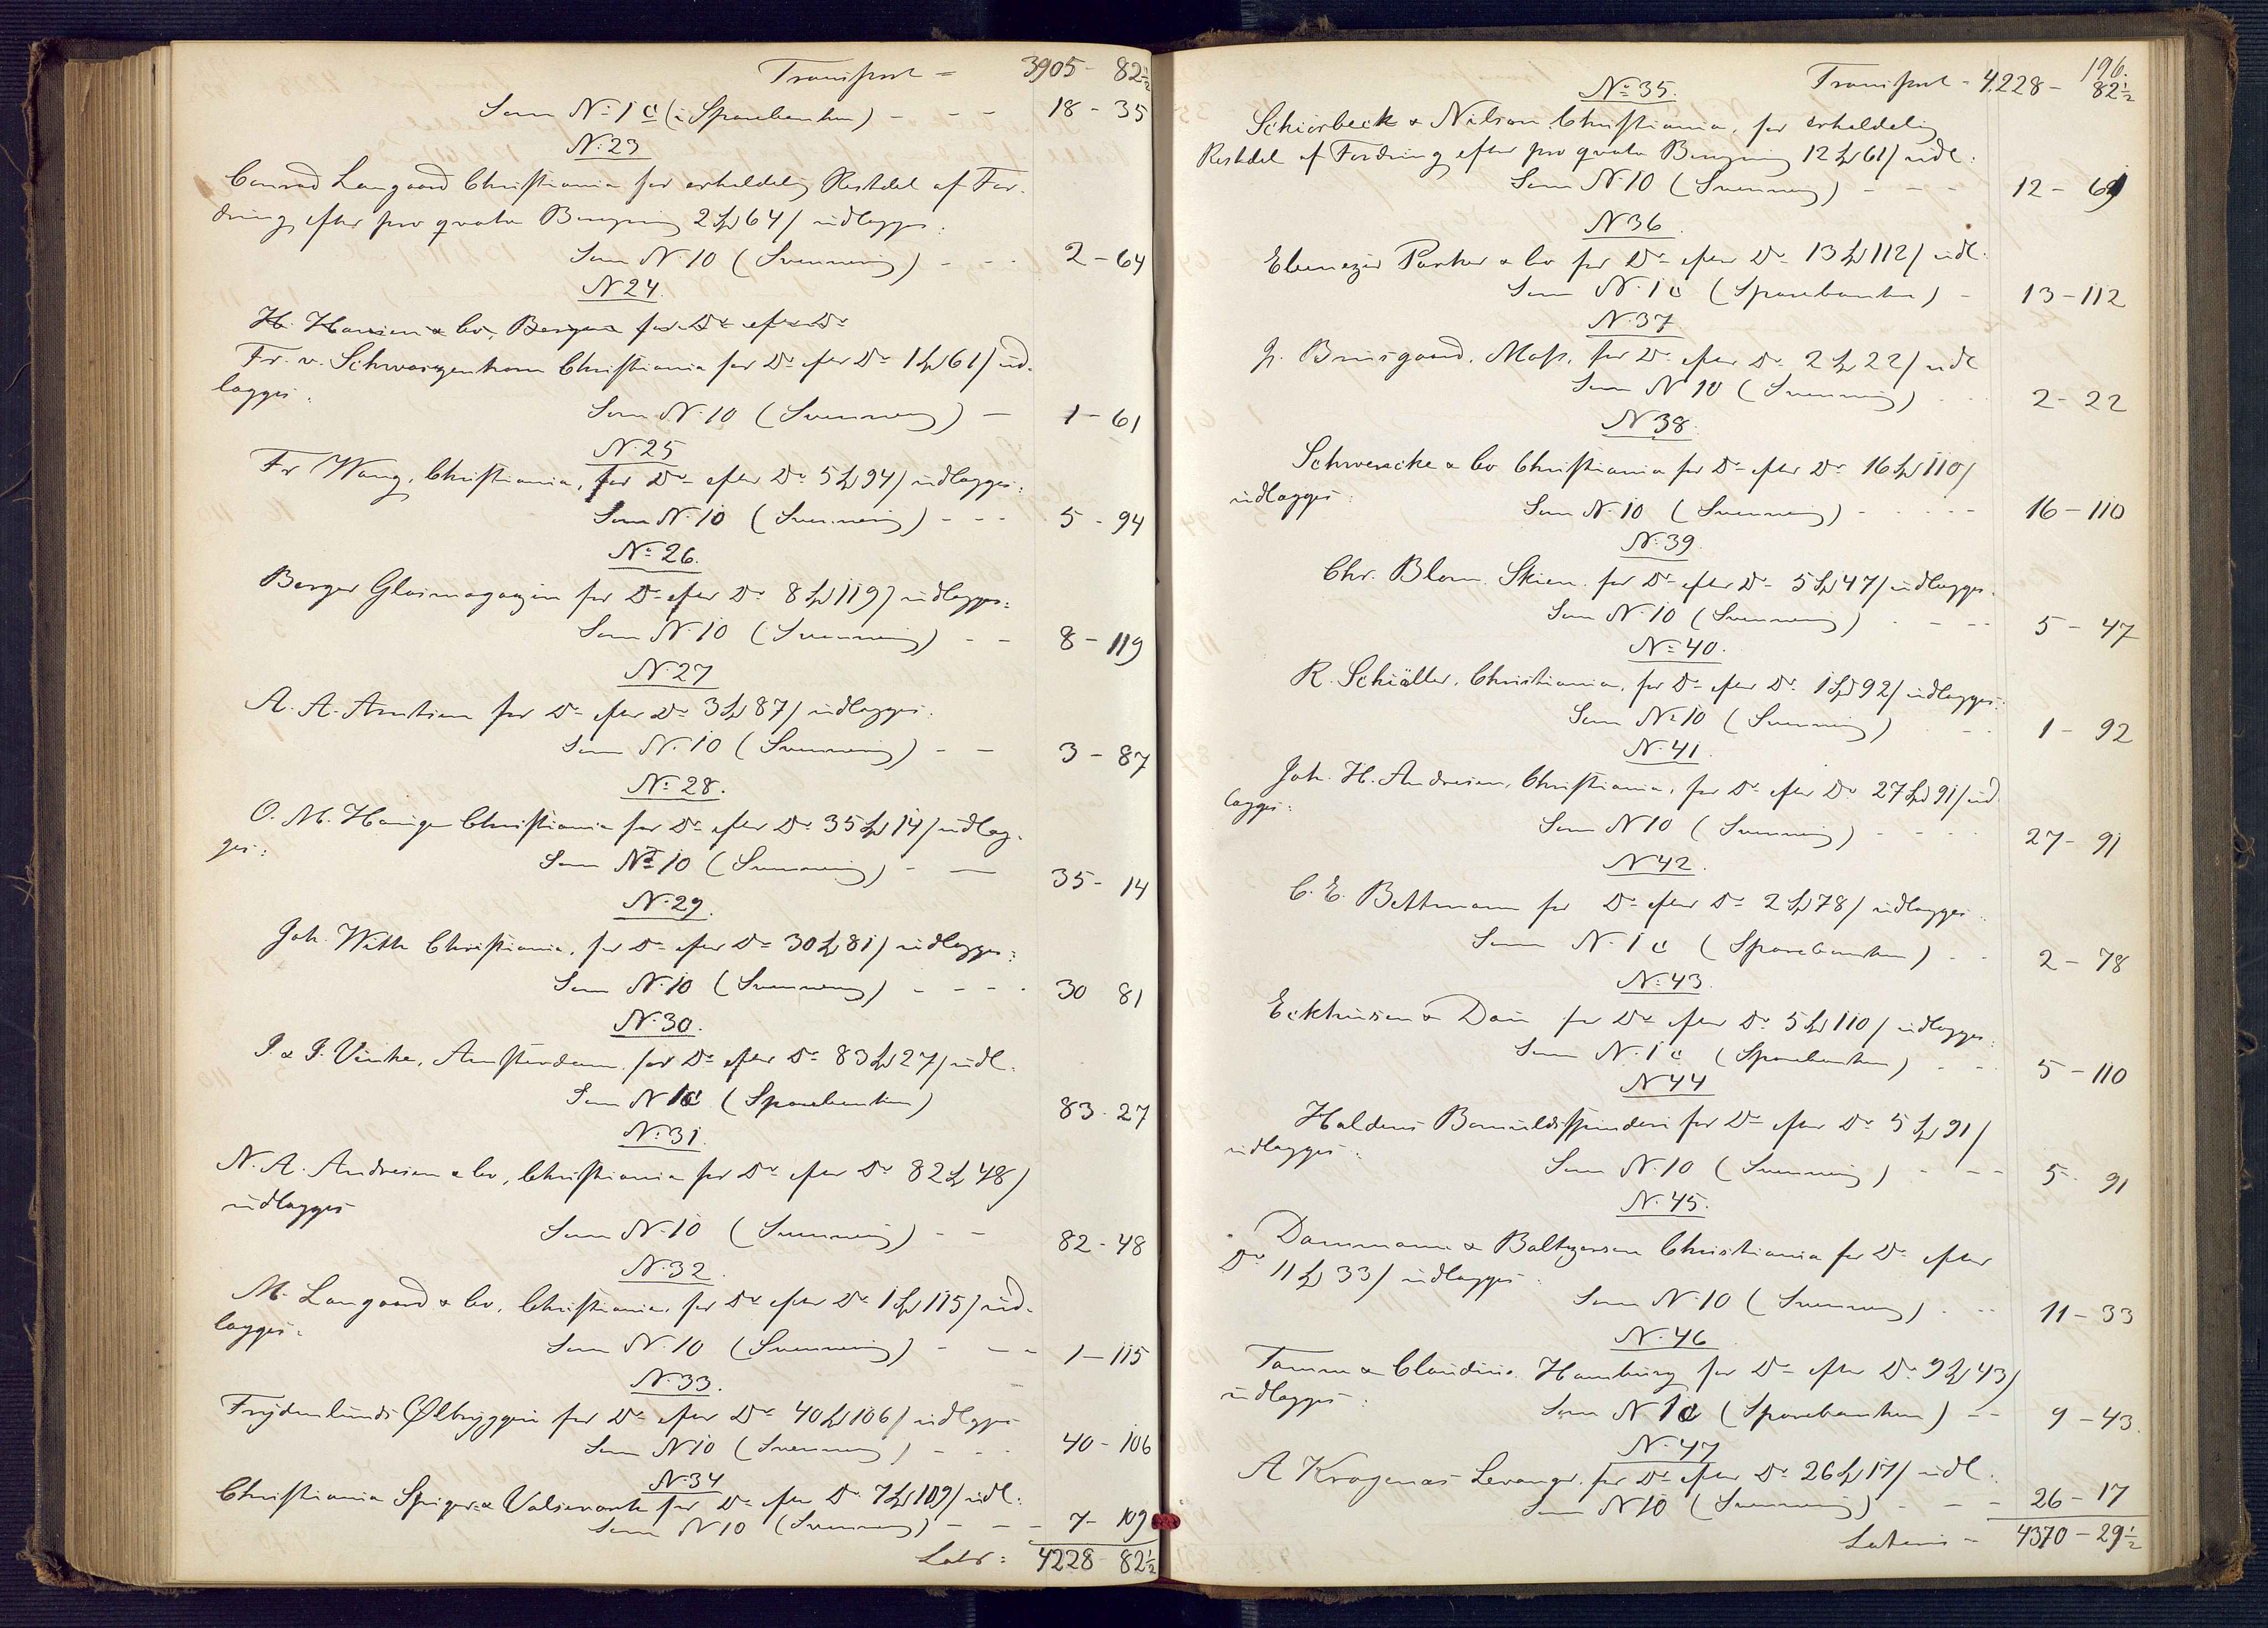 Transport = 3905 - 82½
Som N: 1 c (i Sparebanken) - - - 18 - 35
N: 23
Conrad Langaard Christiania for erholdelig Restdel af For-
dring efter pro qvota Beregning 2 Spd 64 / udlægges:
Som N. 10 (Svenning) - - - 2 - 64
N 24.
H. Hansen & Co, Bergen for Do efter Do
Fr. v. Schwartzenhorn Christiania for Do efter Do 1 Spd 61 / ud-
lægges:
Som N. 10 (Svenning) - 1 - 61
N. 25
Fr Wang, Christiania, for Do efter Do 5 Spd 94 / udlægges:
Som N. 10 (Svenning) - - - 5 - 94
No 26.
Berger Glasmagazin for Do efter Do 8 Spd 119 / udlægges:
Som N. 10 (Svenning) - - 8 - 119
N. 27
A. A. Arntsen for Do efter Do 3 Spd 87 / udlægges:
Som N. 10 (Svenning) - - 3 - 87
No 28.
O. M. Hauge Christiania for Do efter Do 35 Spd 14 / udlæg-
ges:
Som No 10 (Svenning) - - 35 - 14
N. 29.
Joh. With Christiania, for Do efter Do 30 Spd 81 / udlægges:
Som N. 10 (Svenning) - - - - 30 81
N. 30.
J. & J. Vinke, Amsterdam, for Do efter Do 83 Spd 27 / udl.
Som N 1c (Sparebanken) 83 - 27
N: 31.
N. A. Andresen & Co, Christiania for Do efter Do 82 Spd 48 /
udlægges
Som N. 10 (Svenning) - - 82 - 48
N. 32.
M. Langaard & Co, Christiania, for Do efter Do 1 Spd 115 / ud-
lægges:
Som N. 10 (Svenning) - - - 1 - 115
N. 33.
Frydenlunds Ølbryggeri for Do efter Do 40 Spd 106 / udlægges
Som N 10 (Svenning) - - - 40 - 106
N. 34
Christiania Spiger & Valseværk for Do efter Do 7 Spd 109 / udl:
Som N 10 (Svenning) - - - 7 - 109
Latr: 4228 - 82½
196.
No 35. Transport - 4,228 - 82½
Schiørbeck & Nilson Christiania, for erholdelig
Restdel af Fordring efter pro qvota Beregning 12 Spd 61 / udl:
Som N. 10 (Svenning) - - - 12 - 61
N 36.
Ebenezer Parker & Co for Do efter Do 13 Spd 112 / udl:
Som N. 1 c (Sparebanken) - 13 - 112
N. 37.
Moss, for Do efter Do 2 Spd 22 / udl
Som N 10 (Svenning) - - - 2 - 22
N 38.
Schwencke & Co Christiania for Do efter Do 16 Spd 110 /
udlægges:
Som N. 10 (Svenning) - - - - - 16 - 110
N. 39.
Chr. Blom. Skien. for Do efter Do 5 Spd 47 / udlægges.
Som N. 10 (Svenning) - - - - 5 - 47
No 40.
R. Schiøller, Christiania, for Do efter Do 1 Spd 92 / udlægges:
Som No 10 (Svenning) - - 1 - 92
N. 41.
Joh. H. Andresen, Christiania, for Do efter Do 27 Spd 91 / ud
lægges:
Som N 10 (Svenning) - - - - 27 - 91
N 42.
C. E. Bettmann for Do efter Do 2 Spd 78 / udlægges:
Som N. 1 c (Sparebanken) - - 2 - 78
N. 43.
Eckhusen & Dau for Do efter Do 5 Spd 110 / udlægges:
Som N. 1 c (Sparebanken) - - - 5 - 110
N 44
Haldens Bomuldsspinderi for Do efter Do 5 Spd 91 /
udlægges:
Som N. 10 (Svenning) - - - 5 - 91
N. 45.
Dammann & Baltzersen Christiania for Do efter
Do 11 Spd 33 / udlægges:
Som N. 10 (Svenning) - - - 11 - 33
N. 46.
Tamm & Claudius. Hamburg for Do efter Do 9 Spd 43 /
udlægges:
Som N 1c (Sparebanken) - - 9 - 43.
N. 47
A Krogenæs Levanger. for Do efter Do 26 Spd 17 / udl:
Som N 10 (Svenning) - - - 26 - 17
Lateris - 4370 - 29½